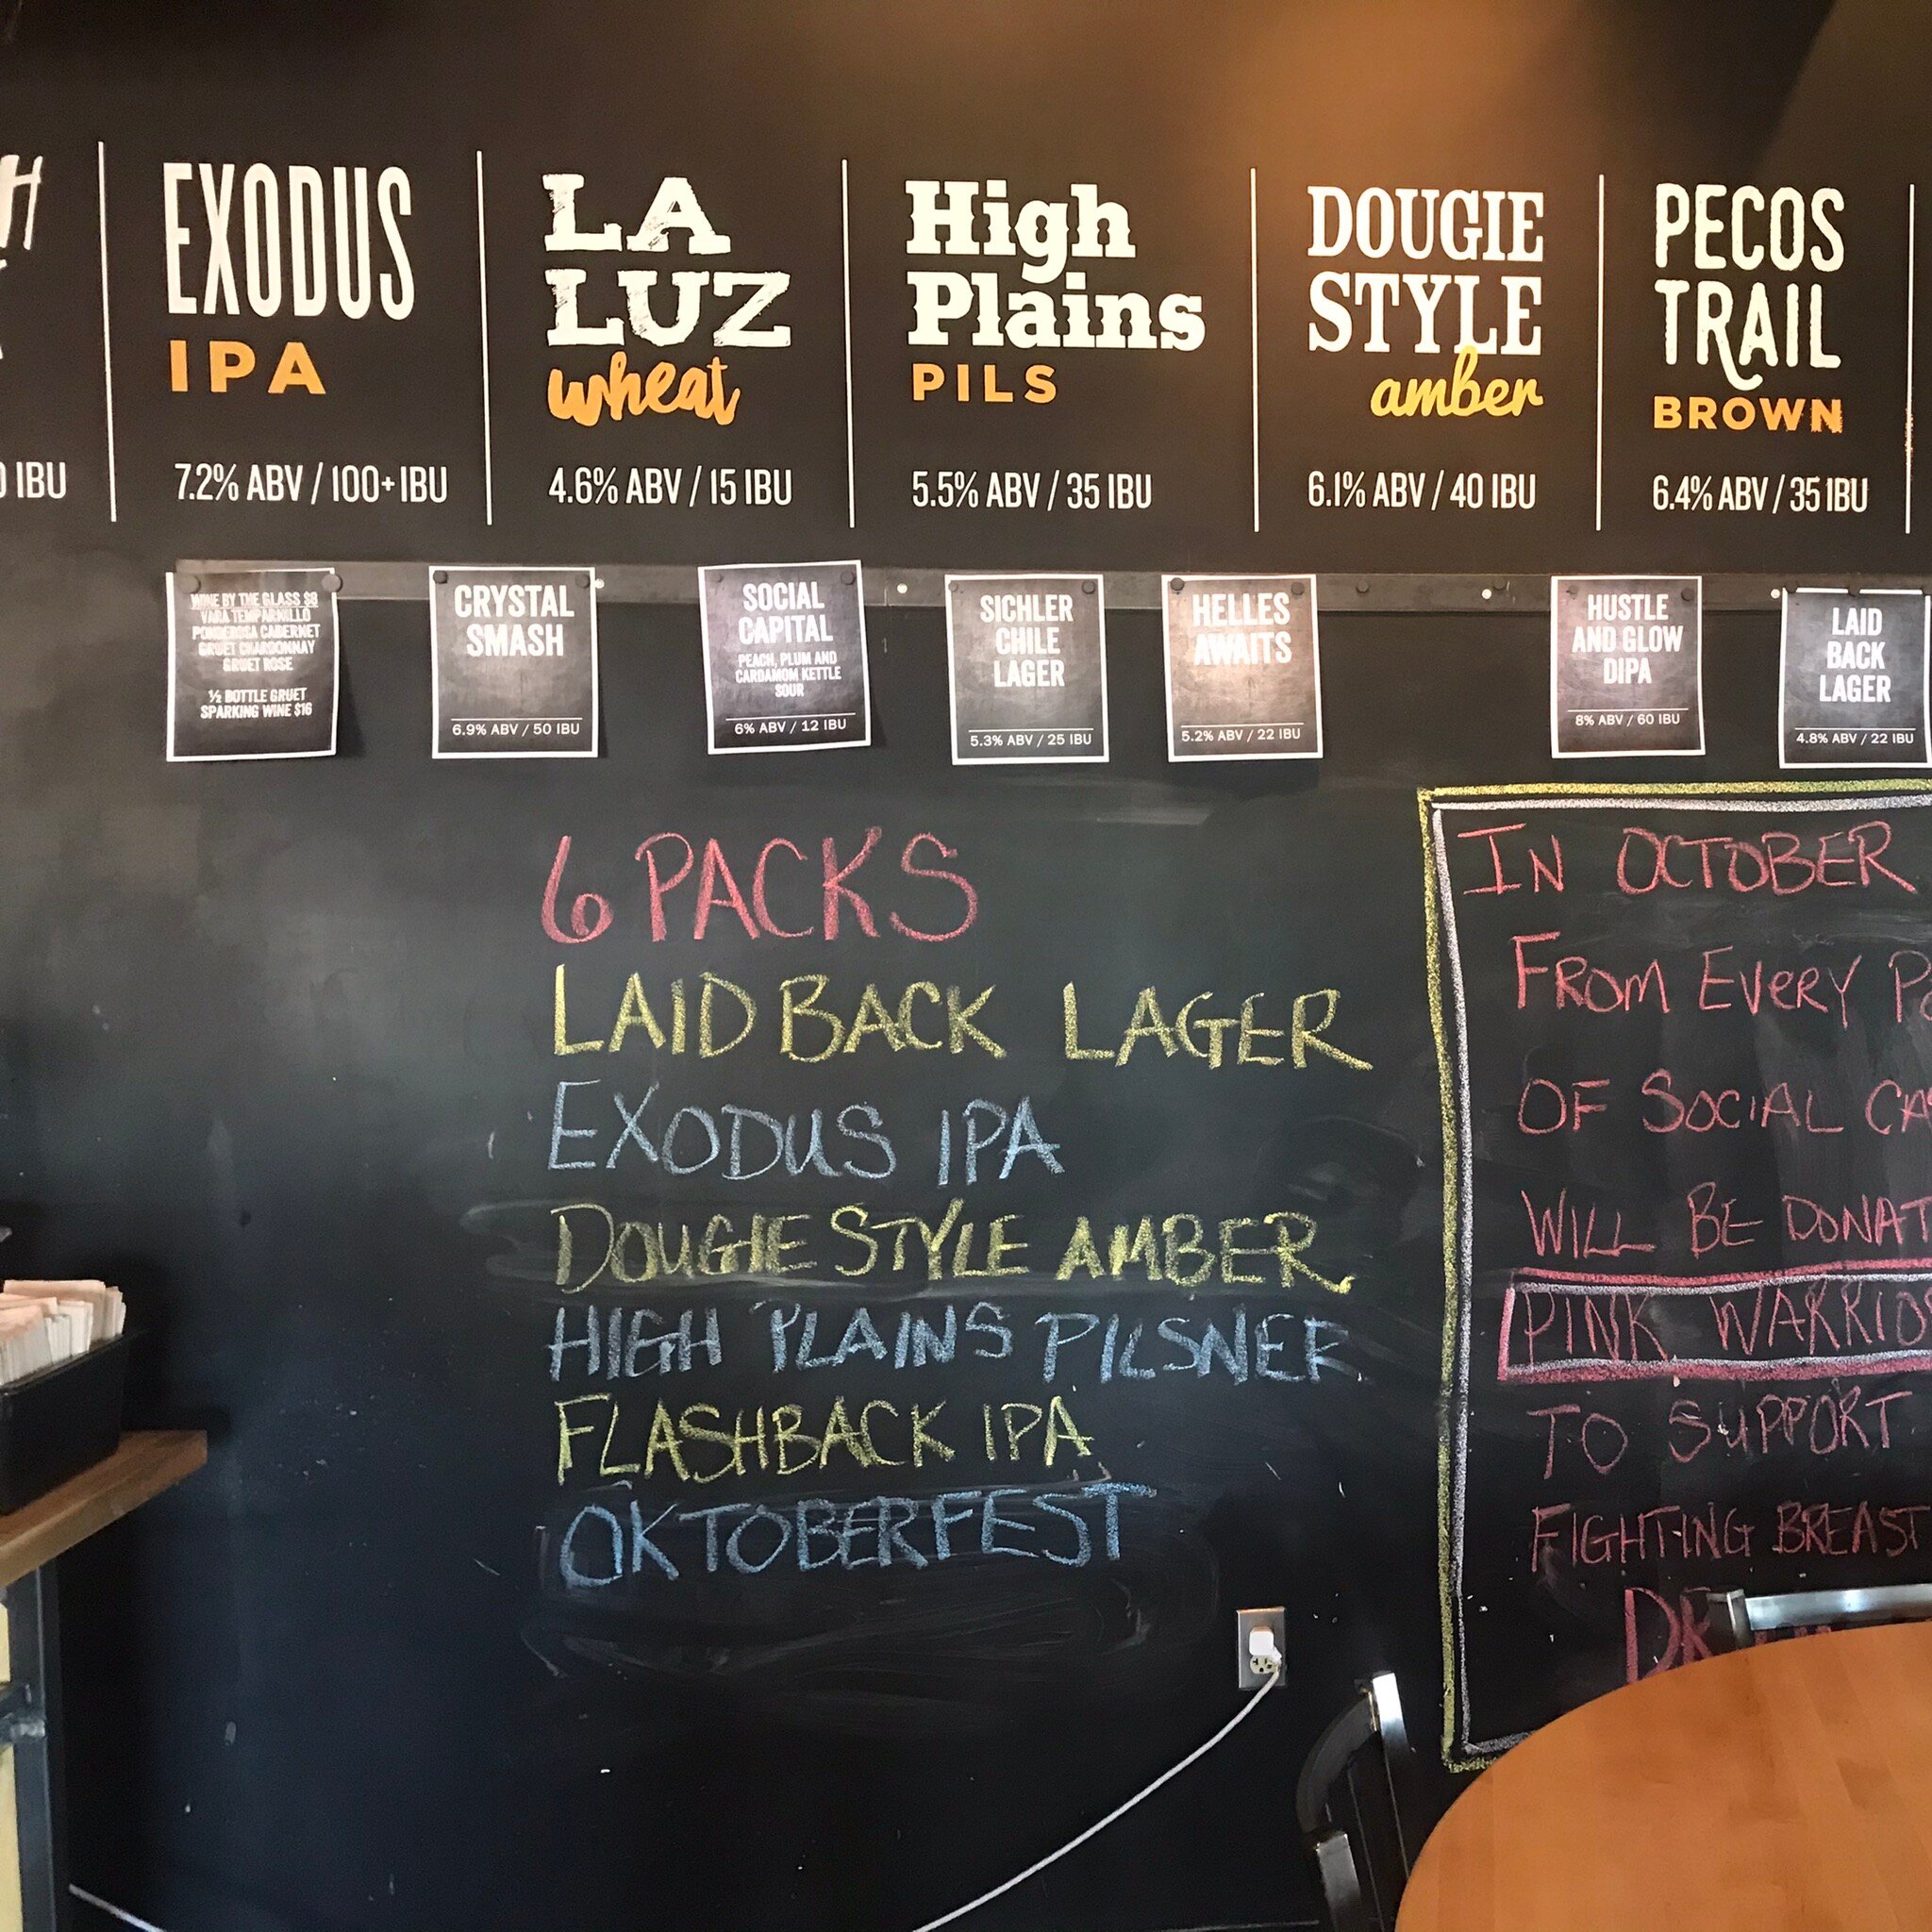 H
EXODUS
IPA
7.2% ABV / 100+ IBU
LA
LUZ
wheat
4.6% ABV / 15 IBU
High
Plains
PILS
5.5% ABV / 35 IBU
DOUGIE
STYLE
amber
6.1% ABV / 40 IBU
PECOS
TRAIL
BROWN
6.4% ABV / 35 IBU
IBU
WINE BY THE GLASS $8
VARA TEMPARNILLO
PONDEROSA CABERNET
GRUET CHARDONNAY
GRUET ROSE
½ BOTTLE GRUET
SPARKING WINE $16
CRYSTAL
SMASH
6.9% ABV / 50 IBU
SOCIAL
CAPITAL
PEACH, PLUM AND
CARDAMOM KETTLE
SOUR
6% ABV / 12 IBU
SICHLER
CHILE
LAGER
5.3% ABV / 25 IBU
HELLES
AWAITS
5.2% ABV / 22 IBU
HUSTLE
AND GLOW
DIPA
8% ABV / 60 IBU
LAID
BACK
LAGER
4.8% ABV / 22 IBU
6 PACKS
LAID BACK LAGER
EXODUS IPA
DOUGIE STYLE AMBER
HIGH PLAINS PILSNER
FLASHBACK IPA
OKTOBERFEST
IN OCTOBER
FROM EVERY
OF SOCIAL
WILL BE DONAT
PINK WARRIO
TO SUPPORT
FIGHTING BREAST